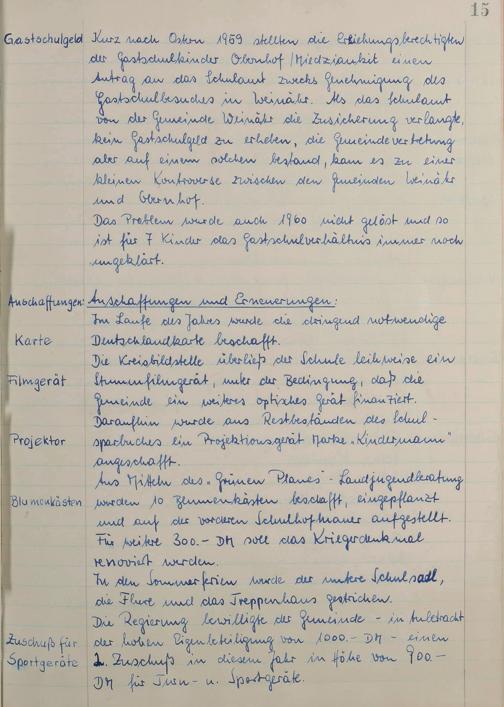 15
Gastschulgeld Kurz nach Ostern 1959 stellten die Erziehungsberechtigten
der Gastschulkinder Obernhof/Miedziankit einen
Antrag an das Schulamt zwecks Genehmigung des
Gastschulbesuches in Weinähr. Als das Schulamt
von der Gemeinde Weinähr die Zusicherung verlangte,
kein Gastschulgeld zu erheben, die Gemeindevertretung
aber auf einem solchen bestand, kam es zu einer
kleinen Kontroverse zwischen den Gemeinden Weinähr
und Obernhof.
Das Problem wurde auch 1960 nicht gelöst und so
ist für 7 Kinder das Gastschulverhältnis immer noch
ungeklärt.
Anschaffungen: Anschaffungen und Erneuerungen:
Im Laufe des Jahres wurde die dringend notwendige
Karte Deutschlandkarte beschafft.
Die Kreisbildstelle überließ der Schule leihweise ein
Filmgerät Stummfilmgerät, unter der Bedingung, daß die
Gemeinde ein weiteres optisches Gerät finanziert.
Daraufhin wurde aus Restbeständen des Schul-
Projektor sparbuches ein Projektionsgerät Marke "Kindermann"
angeschafft.
Aus Mitteln des "Grünen Planes" - Landjugendberatung
Blumenkästen wurden 10 Blumenkästen beschafft, eingepflanzt
und auf der vorderen Schulhofmauer aufgestellt.
Für weitere 300.- DM soll das Kriegerdenkmal
renoviert werden.
In den Sommerferien wurde der untere Schulsaal,
die Flure und das Treppenhaus gestrichen.
Die Regierung bewilligte der Gemeinde - in Anbetracht
Zuschuß für der hohen Eigenbeteiligung von 1000.- DM - einen
Sportgeräte 2. Zuschuß in diesem Jahr in Höhe von 900.-
DM für Turn- u. Sportgeräte.